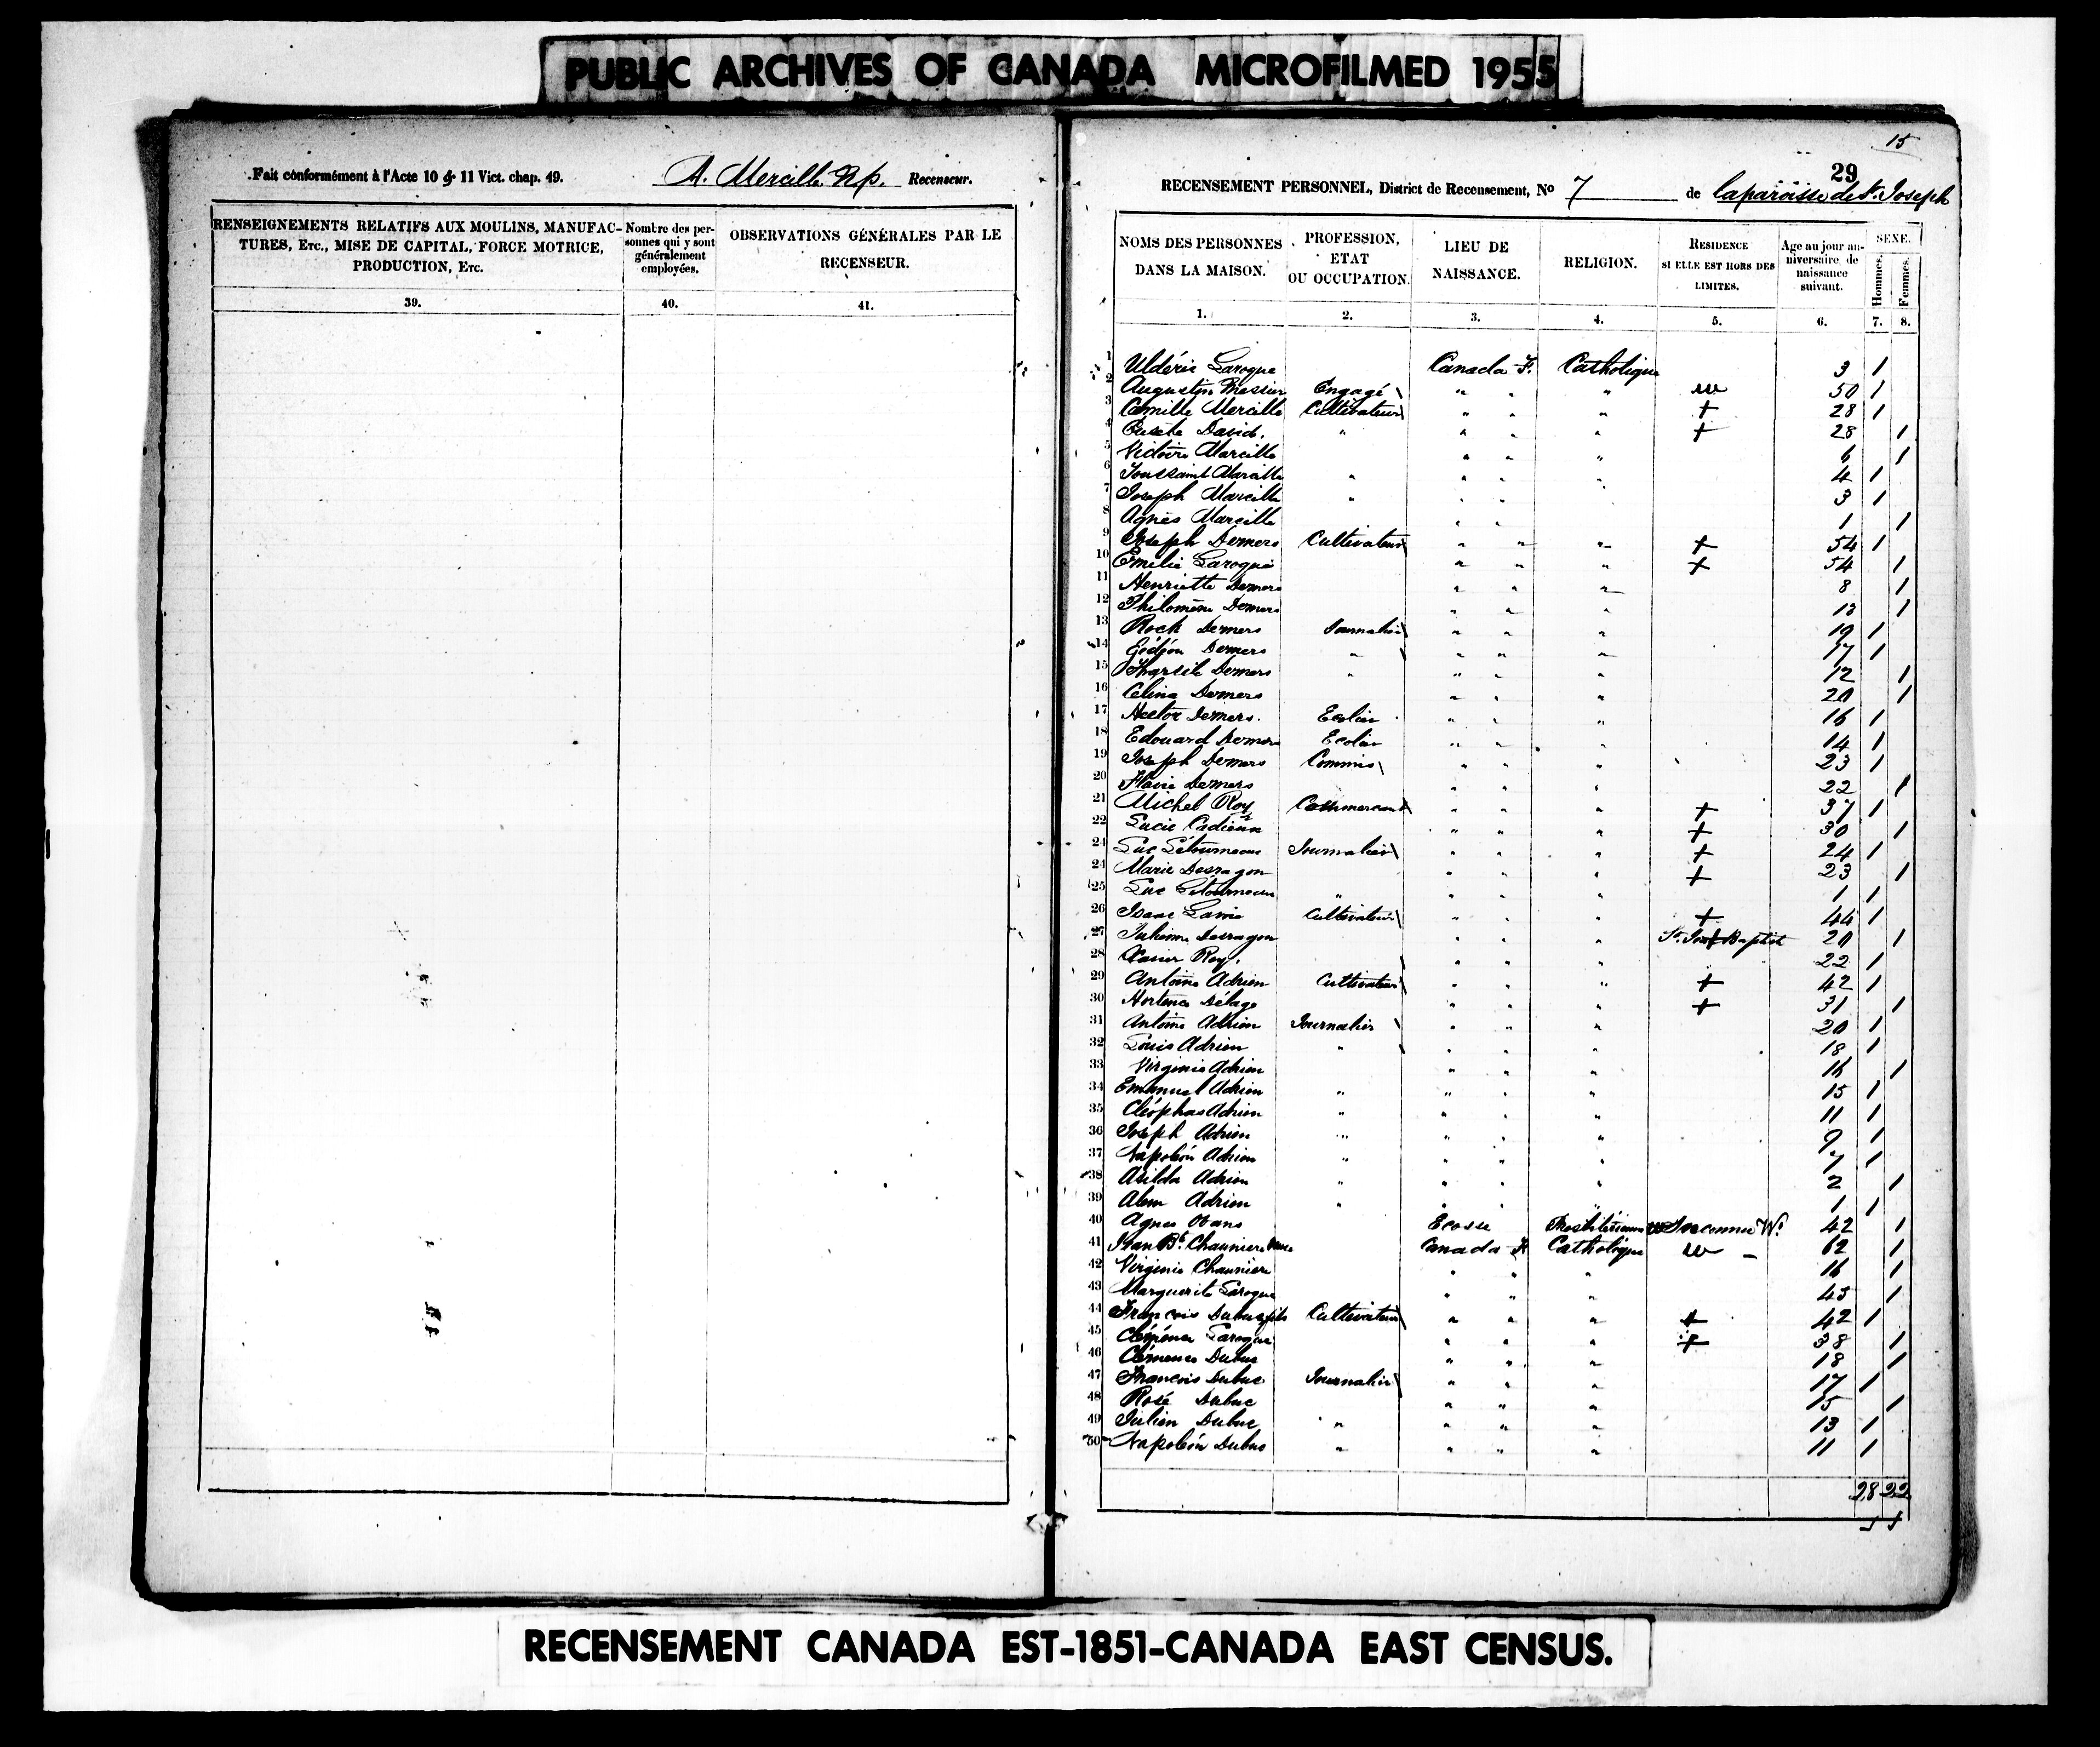 PUBLIC ARCHIVES OF CANADA MICROFILMED 1955
Fait conformément à l'Acte 10 & 11 Vict. chap. 49. A. Mercille N.p. Recenseur.
RENSEIGNEMENTS RELATIFS AUX MOULINS, MANUFAC-
TURES, ETC., MISE DE CAPITAL, FORCE MOTRICE,
PRODUCTION, ETC.
Nombre des per-
sonnes qui y sont
généralement
employées.
OBSERVATIONS GÉNÉRALES PAR LE
RECENSEUR.
39. 40. 41.
15
29
RECENSEMENT PERSONNEL, District de Recensement, No 7 de la paroisse de St. Joseph
NOMS DES PERSONNES
DANS LA MAISON.
PROFESSION,
ETAT
OU OCCUPATION.
LIEU DE
NAISSANCE.
RELIGION.
RESIDENCE
SI ELLE EST HORS DES
LIMITES.
Age au jour an-
niversaire de
naissance
suivant.
SEXE.
Hommes.
Femmes.
1. 2. 3. 4. 5. 6. 7. 8.
1 Uldéric Laroque Canada F. Catholique 3 1
2 Augustin Messier Engagé " " " w 50 1
3 Camille Mercille Cultivateur " " " + 28 1
4 David. " " " " + 28 1
5 Victoire Marcille " " " 6 1
6 Toussaint Marcille " " " " 4 1
7 Joseph Marcille " " " 3 1
8 Agnès Marcille " " 1 1
9 Joseph Demers Cultivateur " " " + 54 1
10 Emilie Laroque " " " + 54 1
11 Henriette Demers " " " 8 1
12 Philomène Demers " " " 13 1
13 Rock Demers Journalier " " " 19 1
14 Gédéon Demers " " " " 17 1
15 Tharsile Demers " " " " 12 1
16 Celina Demers " " " 20 1
17 Hector Demers. Ecolier " " " 16 1
18 Edouard Demers Ecolier " " " 14 1
19 Joseph Demers Commis " " " 23 1
20 Flavie Demers " " " 22 1
21 Michel Roy Commercant " " " + 37 1
22 Lucie Cadieux " " " + 30 1
24 Luc Létourneau Journalier " " " + 24 1
24 Marie Desragon " " " + 23 1
25 Luc Létourneau " " " " 1 1
26 Isaac Lamie Cultivateur " " " + 44 1
27 Julienne Desragon " " " St. Jean Baptist 20 1
28 Xavier Roy. " " " 22 1
29 Antoine Adrien Cultivateur " " " + 42 1
30 Hortence Délage " " " + 31 1
31 Antoine Adrien Journalier " " " 20 1
32 Louis Adrien " " " " 18 1
33 Virginie Adrien " " " 16 1
34 Emmanuel Adrien " " " " 15 1
35 Cléophas Adrien " " " " 11 1
36 Joseph Adrien " " " " 9 1
37 Napoléon Adrien " " " " 7 1
38 Asilda Adrien " " " " 2 1
39 Adrien " " " " 1 1
40 Agnes Ecosse Presbiterienne Inconnue W. 42 1
41 Jean Bt. Chauniere Canada F. Catholique w - 62 1
42 Virginie Chauniere " " " 16 1
43 Marguerite Laroque " " " 45 1
44 François Dubuc fils Cultivateur " " " + 42 1
45 Clémence Laroque " " " + 38 1
46 Clémence Dubuc " " " 18 1
47 François Dubuc Journalier " " " 17 1
48 Rosé Dubuc " " " 15 1
49 Julien Dubuc " " " " 13 1
50 Napoléon Dubuc " " " " 11 1
28 22
RECENSEMENT CANADA EST-1851-CANADA EAST CENSUS.